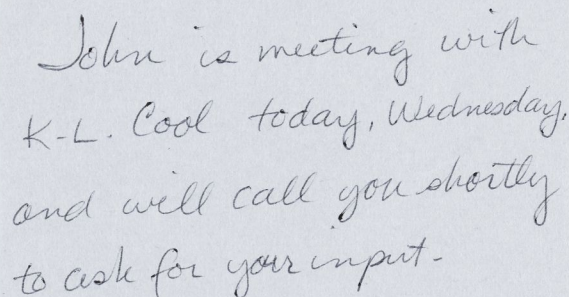 John is meeting with
K-L. Cool today, Wednesday,
and will call you shortly
to ask for your input.